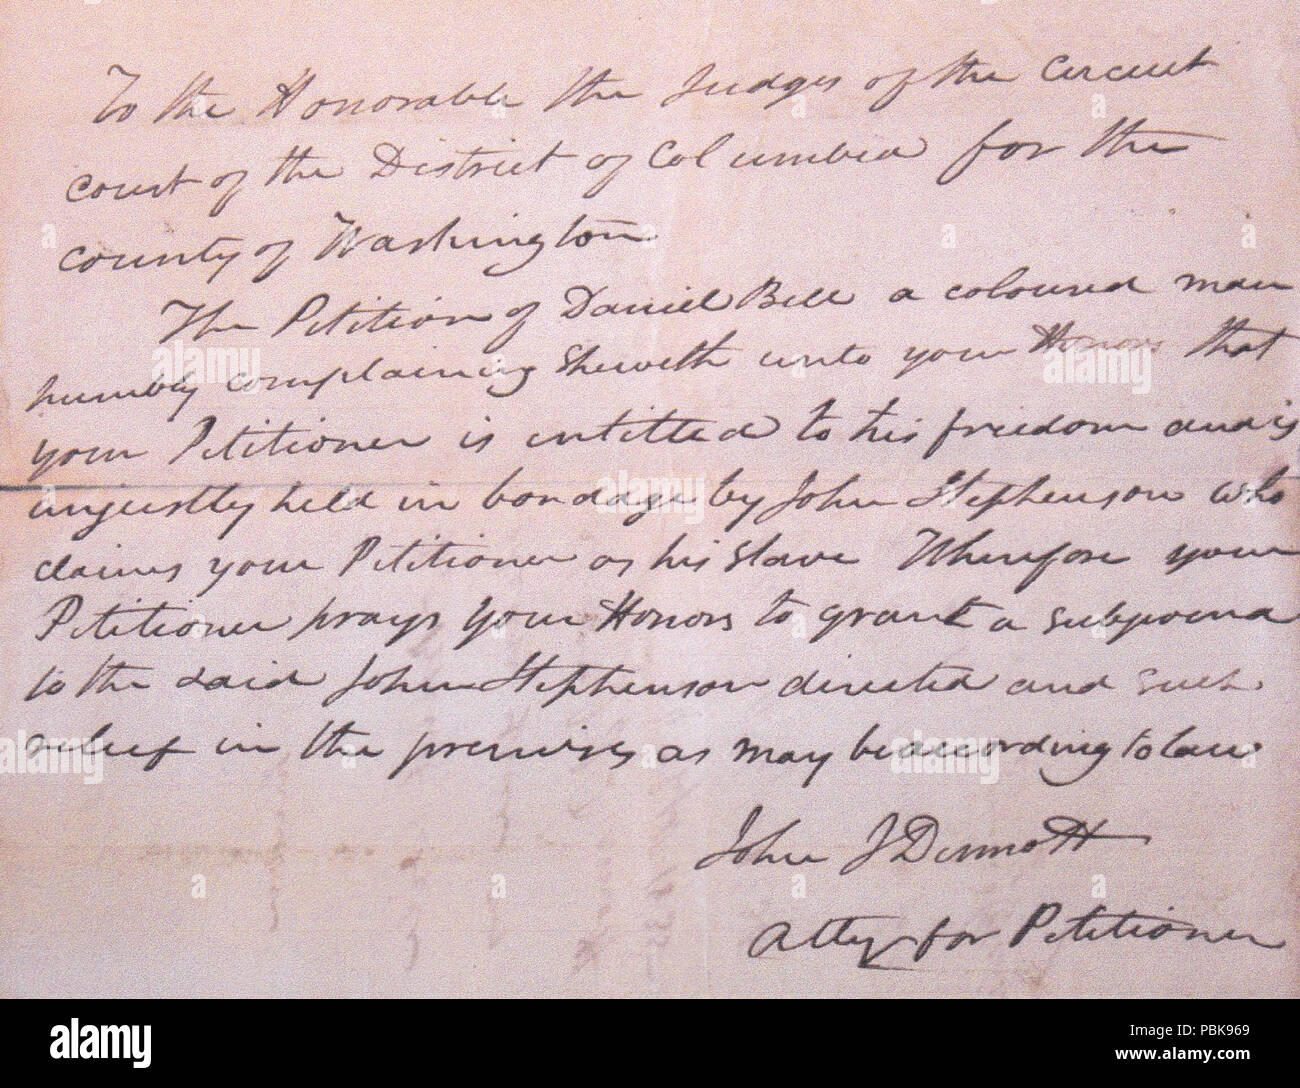 To the Honorable the Judges of the Circuit
Court of the District of Columbia for the
County of Washington
The Petition of Daniel Bell a coloured man
humbly complaining sheweth unto your Honors that
your Petitioner is intitled to his freedom and is
unjustly held in bondage by John Stephenson who
claims your Petitioner as his slave Therefore your
Petitioner prays your Honors to grant a subpoena
to the said John Stephenson directed and such
relief in the premises as may be according to law.
John J Dermott
Atty for Petitioner
alamy
Image ID: PBK969
www.alamy.com